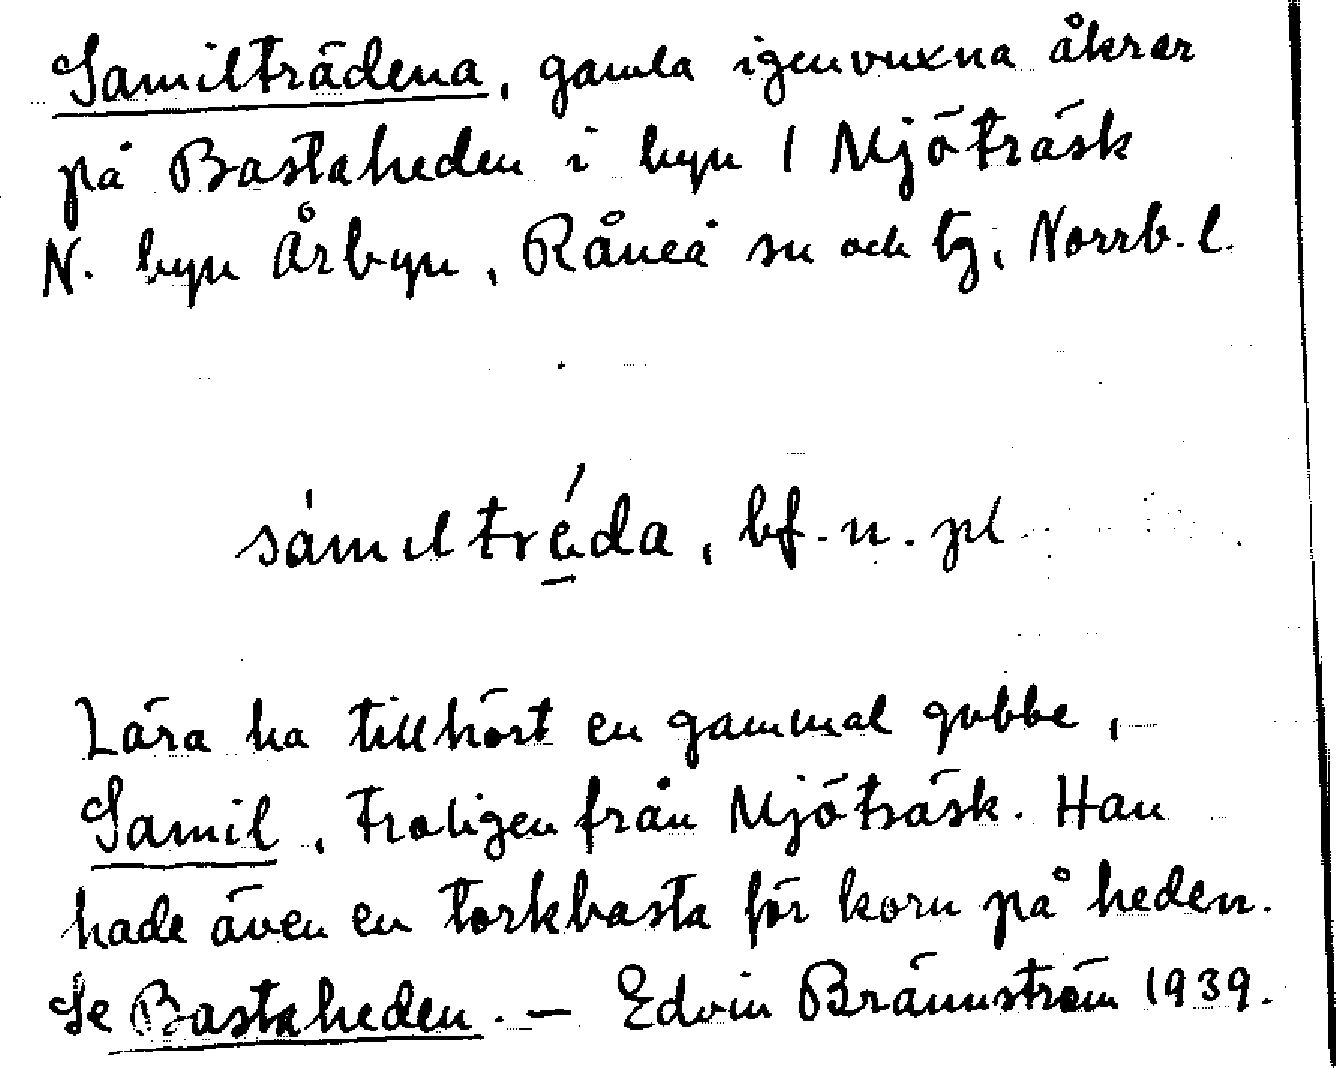 Samilträdena, gamla igenvuxna åkrar
på Bastaheden i byn I Mjöträsk
N. byn Årbyn, Råneå sn och tg, Norrb. l.
sámıltré̱da, bf. n. pl
Lära ha tillhört en gammal gubbe,
Samil, troligen från Mjöträsk. Han
hade även en torkbasta för korn på heden.
Se Bastaheden. — Edvin Brännström 1939.